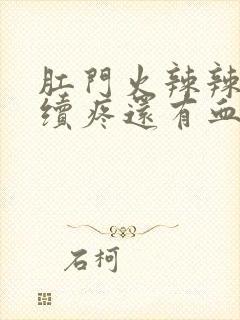 肛門火辣辣
續疼還有血
石柯